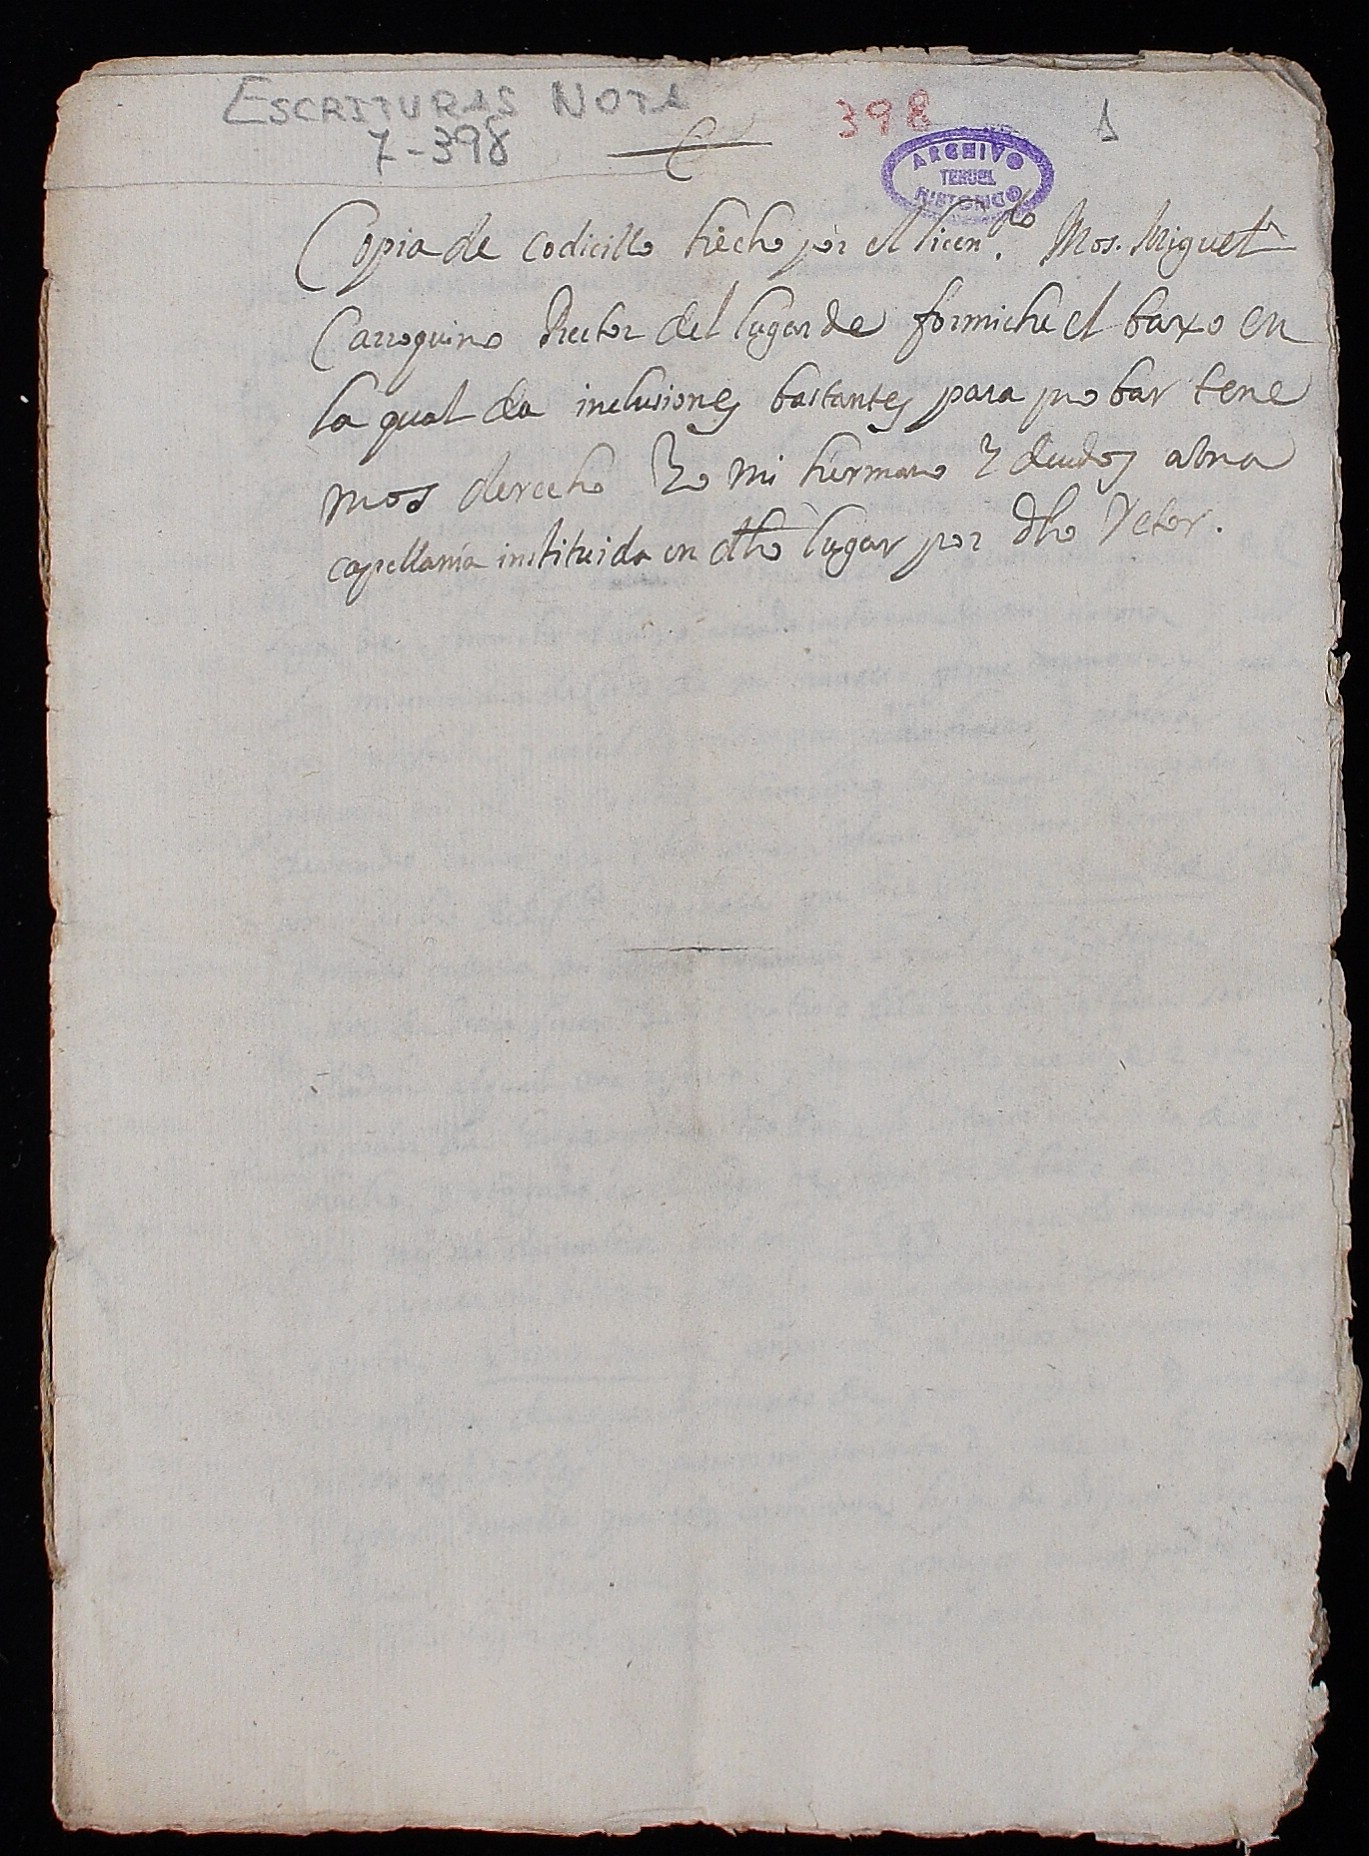 ESCRITURAS NOTA
7-398
398
1
ARCHIVO
TERUEL
HISTORICO
Copia de codicillo hecho por el licen.do Mos. Miguel
Carroquino Rector del lugar de formiche el baxo en
la qual da inclusiones bastantes para probar tene
mos derecho Yo mi hermano y deudos a vna
capellania instituida en dho lugar por dho Retor.